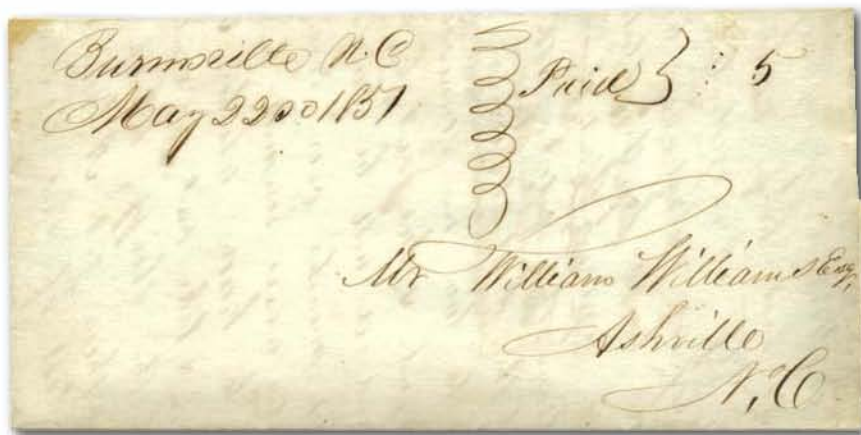 Burnsville N.C
May 22nd 1851
Paid } 5
Mr William Williams Esq,
Ashville
N,C